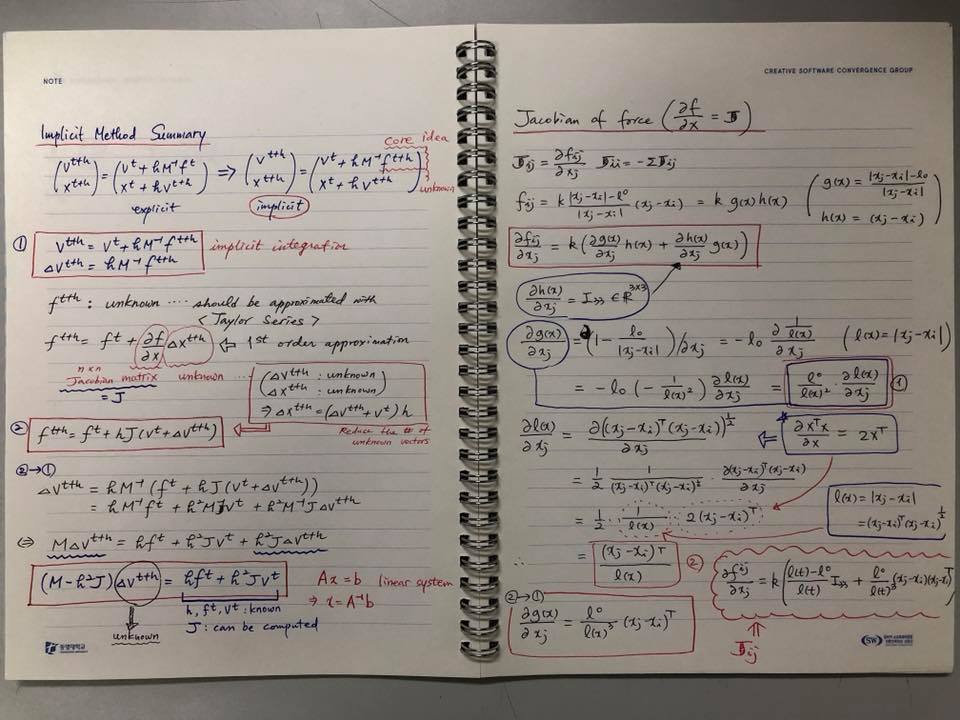 NOTE
Implicit Method Summary
core idea
(v^{t+h} x^{t+h}) = (v^t + hM⁻¹f^t x^t + hv^{t+h}) ⇒ (v^{t+h} x^{t+h}) = (v^t + hM⁻¹f^{t+h} x^t + hv^{t+h})
unknown
explicit implicit
① v^{t+h} = v^t + hM⁻¹f^{t+h} implicit integration
Δv^{t+h} = hM⁻¹f^{t+h}
f^{t+h} : unknown ···· should be approximated with
< Taylor Series >
f^{t+h} = f^t + ∂f/∂x Δx^{t+h} ⇐ 1st order approximation
n×n
Jacobian matrix unknown ···
= J
(Δv^{t+h} : unknown
Δx^{t+h} : unknown)
⇒ Δx^{t+h} = (Δv^{t+h} + v^t) h
② f^{t+h} = f^t + hJ(v^t + Δv^{t+h})
Reduce the # of
unknown vectors
②→①
Δv^{t+h} = hM⁻¹(f^t + hJ(v^t + Δv^{t+h}))
= hM⁻¹f^t + h²M⁻¹Jv^t + h²M⁻¹JΔv^{t+h}
⇔ MΔv^{t+h} = hf^t + h²Jv^t + h²JΔv^{t+h}
(M - h²J) Δv^{t+h} = hf^t + h²Jv^t
Ax = b linear system
⇒ x = A⁻¹b
h, f^t, v^t : known
J : can be computed
unknown
동명대학교
CREATIVE SOFTWARE CONVERGENCE GROUP
Jacobian of force (∂f/∂x = J)
J_ij = ∂f_ij/∂x_j J_ii = -ΣJ_ij
f_ij = k (|x_j-x_i|-l⁰)/|x_j-x_i| (x_j-x_i) = k g(x)h(x)
(g(x) = (|x_j-x_i|-l₀)/|x_j-x_i|
h(x) = (x_j-x_i))
∂f_ij/∂x_j = k(∂g(x)/∂x_j h(x) + ∂h(x)/∂x_j g(x))
∂h(x)/∂x_j = I₃₃ ∈ R^{3×3}
∂g(x)/∂x_j = ∂(1 - l₀/|x_j-x_i|)/∂x_j = -l₀ ∂(1/l(x))/∂x_j (l(x) = |x_j-x_i|)
= -l₀ (-1/l(x)²) ∂l(x)/∂x_j = l⁰/l(x)² · ∂l(x)/∂x_j ①
∂l(x)/∂x_j = ∂((x_j-x_i)^T(x_j-x_i))^{1/2}/∂x_j ⇐ ∂x^Tx/∂x = 2x^T
= 1/2 · 1/((x_j-x_i)^T(x_j-x_i))^{1/2} · ∂(x_j-x_i)^T(x_j-x_i)/∂x_j
= 1/2 · 1/l(x) · 2(x_j-x_i)^T
l(x) = |x_j-x_i|
= ((x_j-x_i)^T(x_j-x_i))^{1/2}
∴ = (x_j-x_i)^T/l(x) ②
②→①
∂g(x)/∂x_j = l⁰/l(x)³ (x_j-x_i)^T
∂f_ij/∂x_j = k((l(t)-l⁰)/l(t) I₃₃ + l⁰/l(t)³ (x_j-x_i)(x_j-x_i)^T)
⇑
J_ij
SW